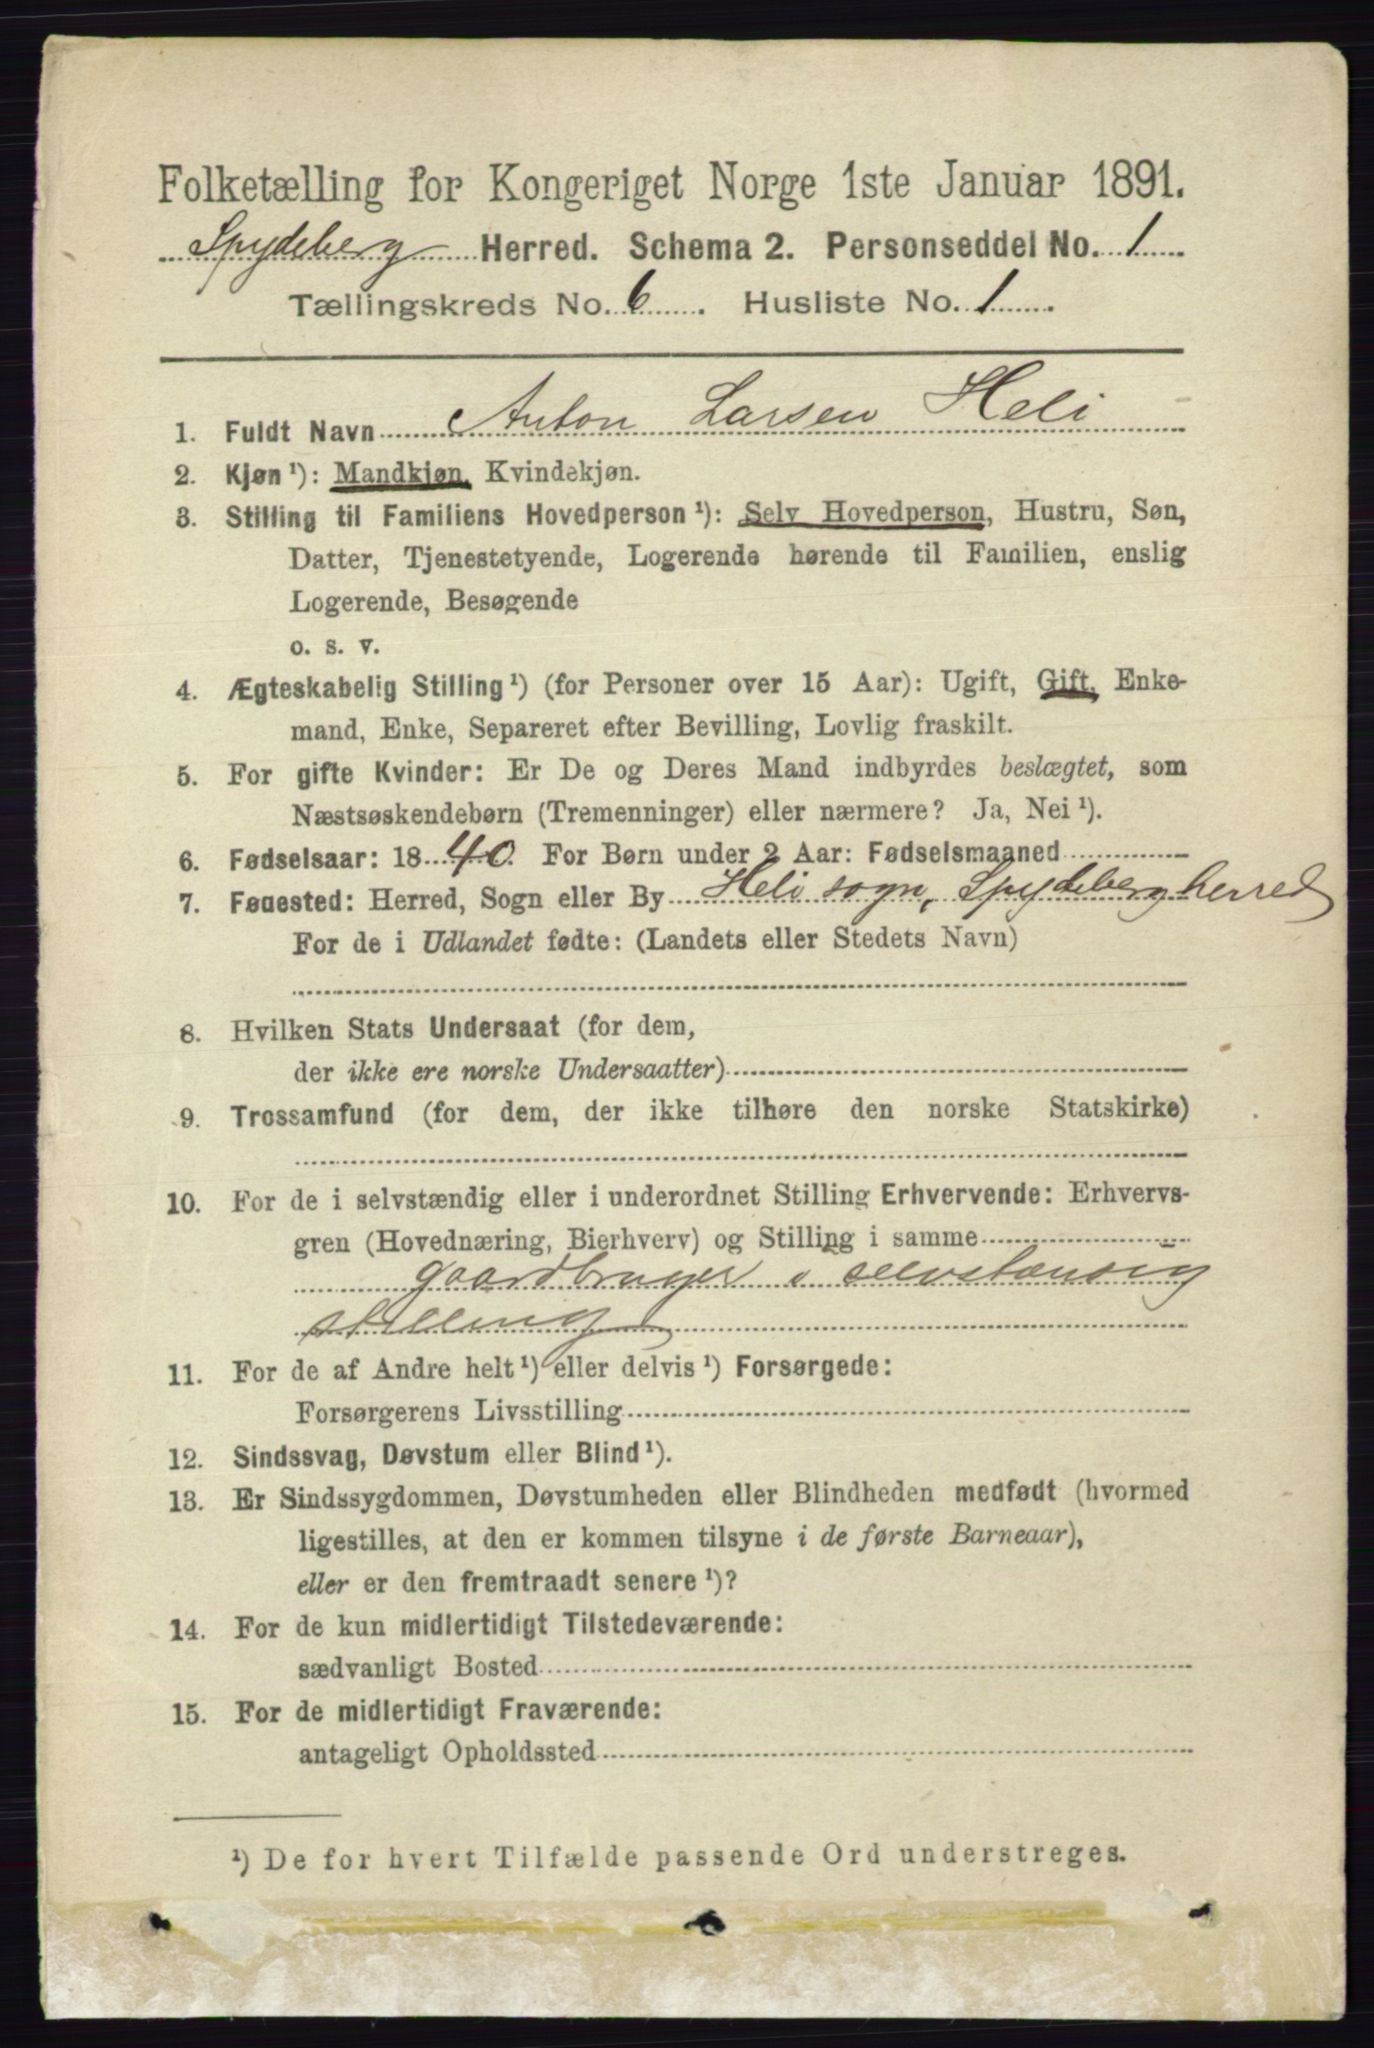 Folketælling for Kongeriget Norge 1ste Januar 1891.
Spydeberg Herred. Schema 2. Personseddel No. 1
Tællingskreds No. 6. Husliste No. 1
1. Fuldt Navn Anton Larsen Heli
2. Kjøn ¹): Mandkjøn, Kvindekjøn.
3. Stilling til Familiens Hovedperson ¹): Selv Hovedperson, Hustru, Søn,
Datter, Tjenestetyende, Logerende hørende til Familien, enslig
Logerende, Besøgende
o. s. v.
4. Ægteskabelig Stilling ¹) (for Personer over 15 Aar): Ugift, Gift, Enke-
mand, Enke, Separeret efter Bevilling, Lovlig fraskilt.
5. For gifte Kvinder: Er De og Deres Mand indbyrdes beslægtet, som
Næstsøskendebørn (Tremenninger) eller nærmere? Ja, Nei ¹).
6. Fødselsaar: 1840. For Børn under 2 Aar: Fødselsmaaned
7. Føuested: Herred, Sogn eller By Heli sogn, Spydeberg herred
For de i Udlandet fødte: (Landets eller Stedets Navn)
8. Hvilken Stats Undersaat (for dem,
der ikke ere norske Undersaatter)
9. Trossamfund (for dem, der ikke tilhøre den norske Statskirke)
10. For de i selvstændig eller i underordnet Stilling Erhvervende: Erhvervs-
gren (Hovednæring, Bierhverv) og Stilling i samme
gaardbruger i selvstændig
stilling
11. For de af Andre helt ¹) eller delvis ¹) Forsørgede:
Forsørgerens Livsstilling
12. Sindssvag, Døvstum eller Blind ¹).
13. Er Sindssygdommen, Døvstumheden eller Blindheden medfødt (hvormed
ligestilles, at den er kommen tilsyne i de første Barneaar),
eller er den fremtraadt senere ¹)?
14. For de kun midlertidigt Tilstedeværende:
sædvanligt Bosted
15. For de midlertidigt Fraværende:
antageligt Opholdssted
¹) De for hvert Tilfælde passende Ord understreges.